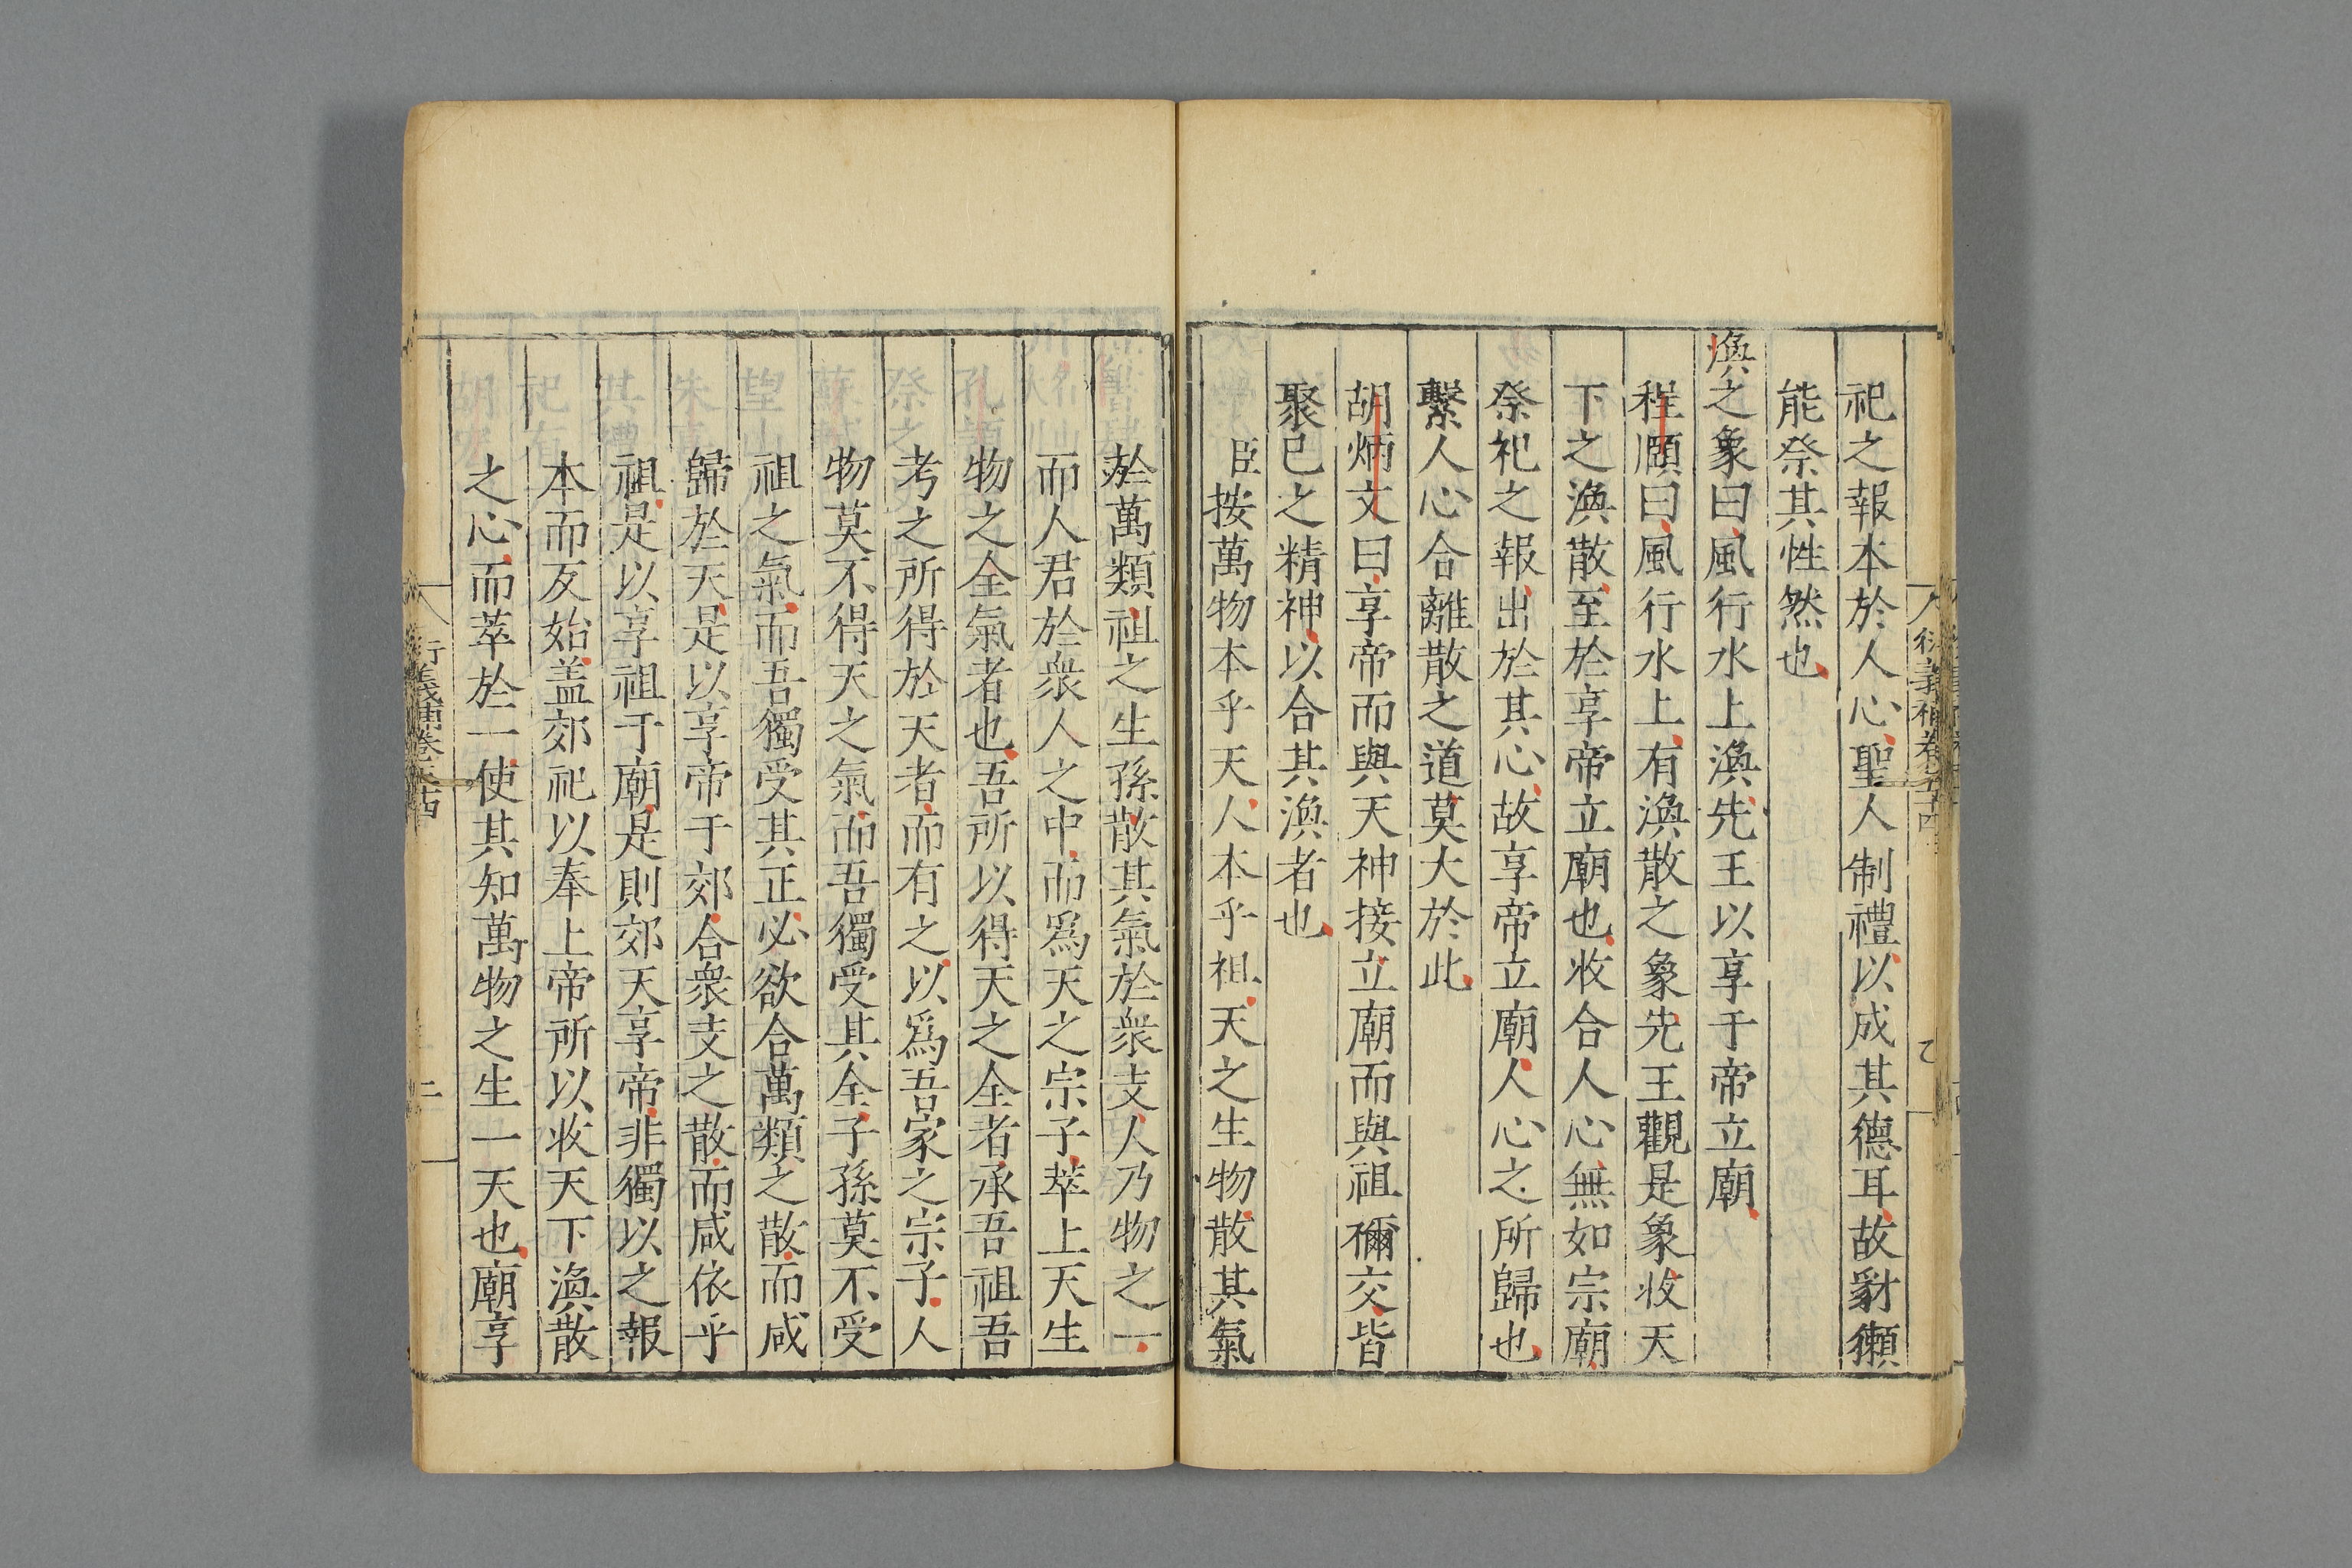 祀之報本於人心聖人制禮以成其德耳故豺獺
能祭其性然也
渙之象曰風行水上渙先王以享于帝立廟
程頤曰風行水上有渙散之象先王觀是象收天
下之渙散至於享帝立廟也收合人心無如宗廟
祭祀之報出於其心故享帝立廟人心之所歸也
繫人心合離散之道莫大於此
胡炳文曰享帝而與天神接立廟而與祖禰交皆
聚已之精神以合其渙者也
臣按萬物本乎天人本乎祖天之生物散其氣
於萬類祖之生孫散其氣於衆支人乃物之一
而人君於衆人之中而爲天之宗子萃上天生
物之全氣者也吾所以得天之全者承吾祖吾
考之所得於天者而有之以爲吾家之宗子人
物莫不得天之氣而吾獨受其全子孫莫不受
祖之氣而吾獨受其正必欲合萬類之散而咸
歸於天是以享帝于郊合衆支之散而咸依乎
祖是以享祖于廟是則郊天享帝非獨以之報
本而反始盖郊祀以奉上帝所以收天下渙散
之心而萃於一使其知萬物之生一天也廟享